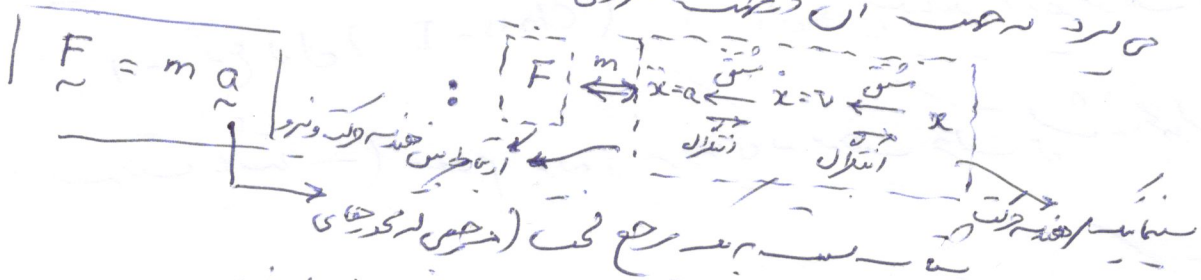 می‌برد در جهت آن
F = m a : F m ⇔ ẍ=a مشتق ẋ=v مشتق x
انتگرال انتگرال
ارتباط بین هندسه حرکت و نیرو
سینماتیک هندسه حرکت
شتاب نسبت به مرجع لخت